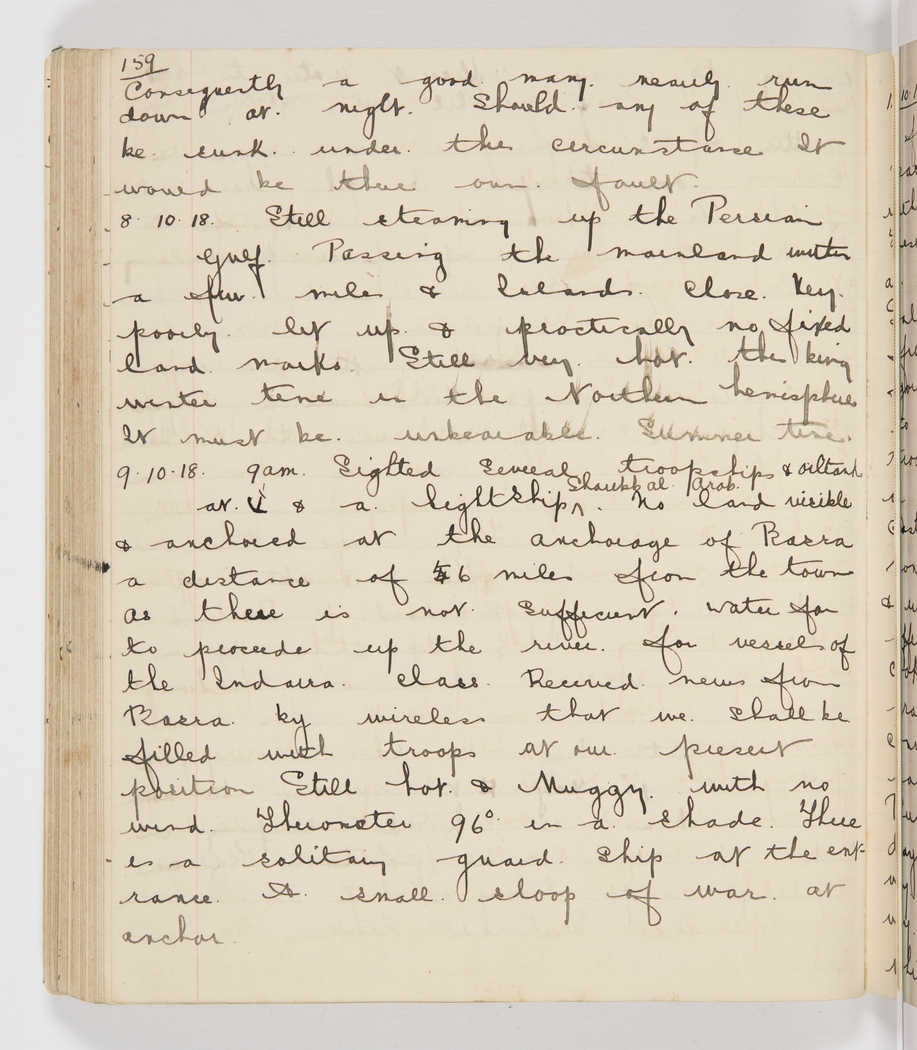 159
Consequently a good many nearly run
down at. night. Should any of these
be sunk. under. the circumstance It
would be their own. fault.
8. 10. 18. Still steaming up the Persian
Gulf. Passing the mainland within
a few miles & Islands. Close. Very.
poorly. lit up. & practically no fixed
land marks. Still very hot. this being
winter time in the Northern hemisphere
It must be. unbearable. Summer time.
9. 10. 18. 9am. Sighted several troopships & oiltank
at. & a lightship Shaukh al Arab. No land visible
& anchored at the anchorage of Basra
a distance of 6 miles from the town
as there is not Sufficient. water for
to proceede up the river. for vessels of
the Indarra. class. Received news from
Basra. by wireless that we. shall be
filled with troops at our present
position Still hot. & Muggy. with no
wind. Thermoter 96° in a. shade. There
is a solitary guard. Ship at the ent-
rance. A. small. sloop of war. at
anchor.